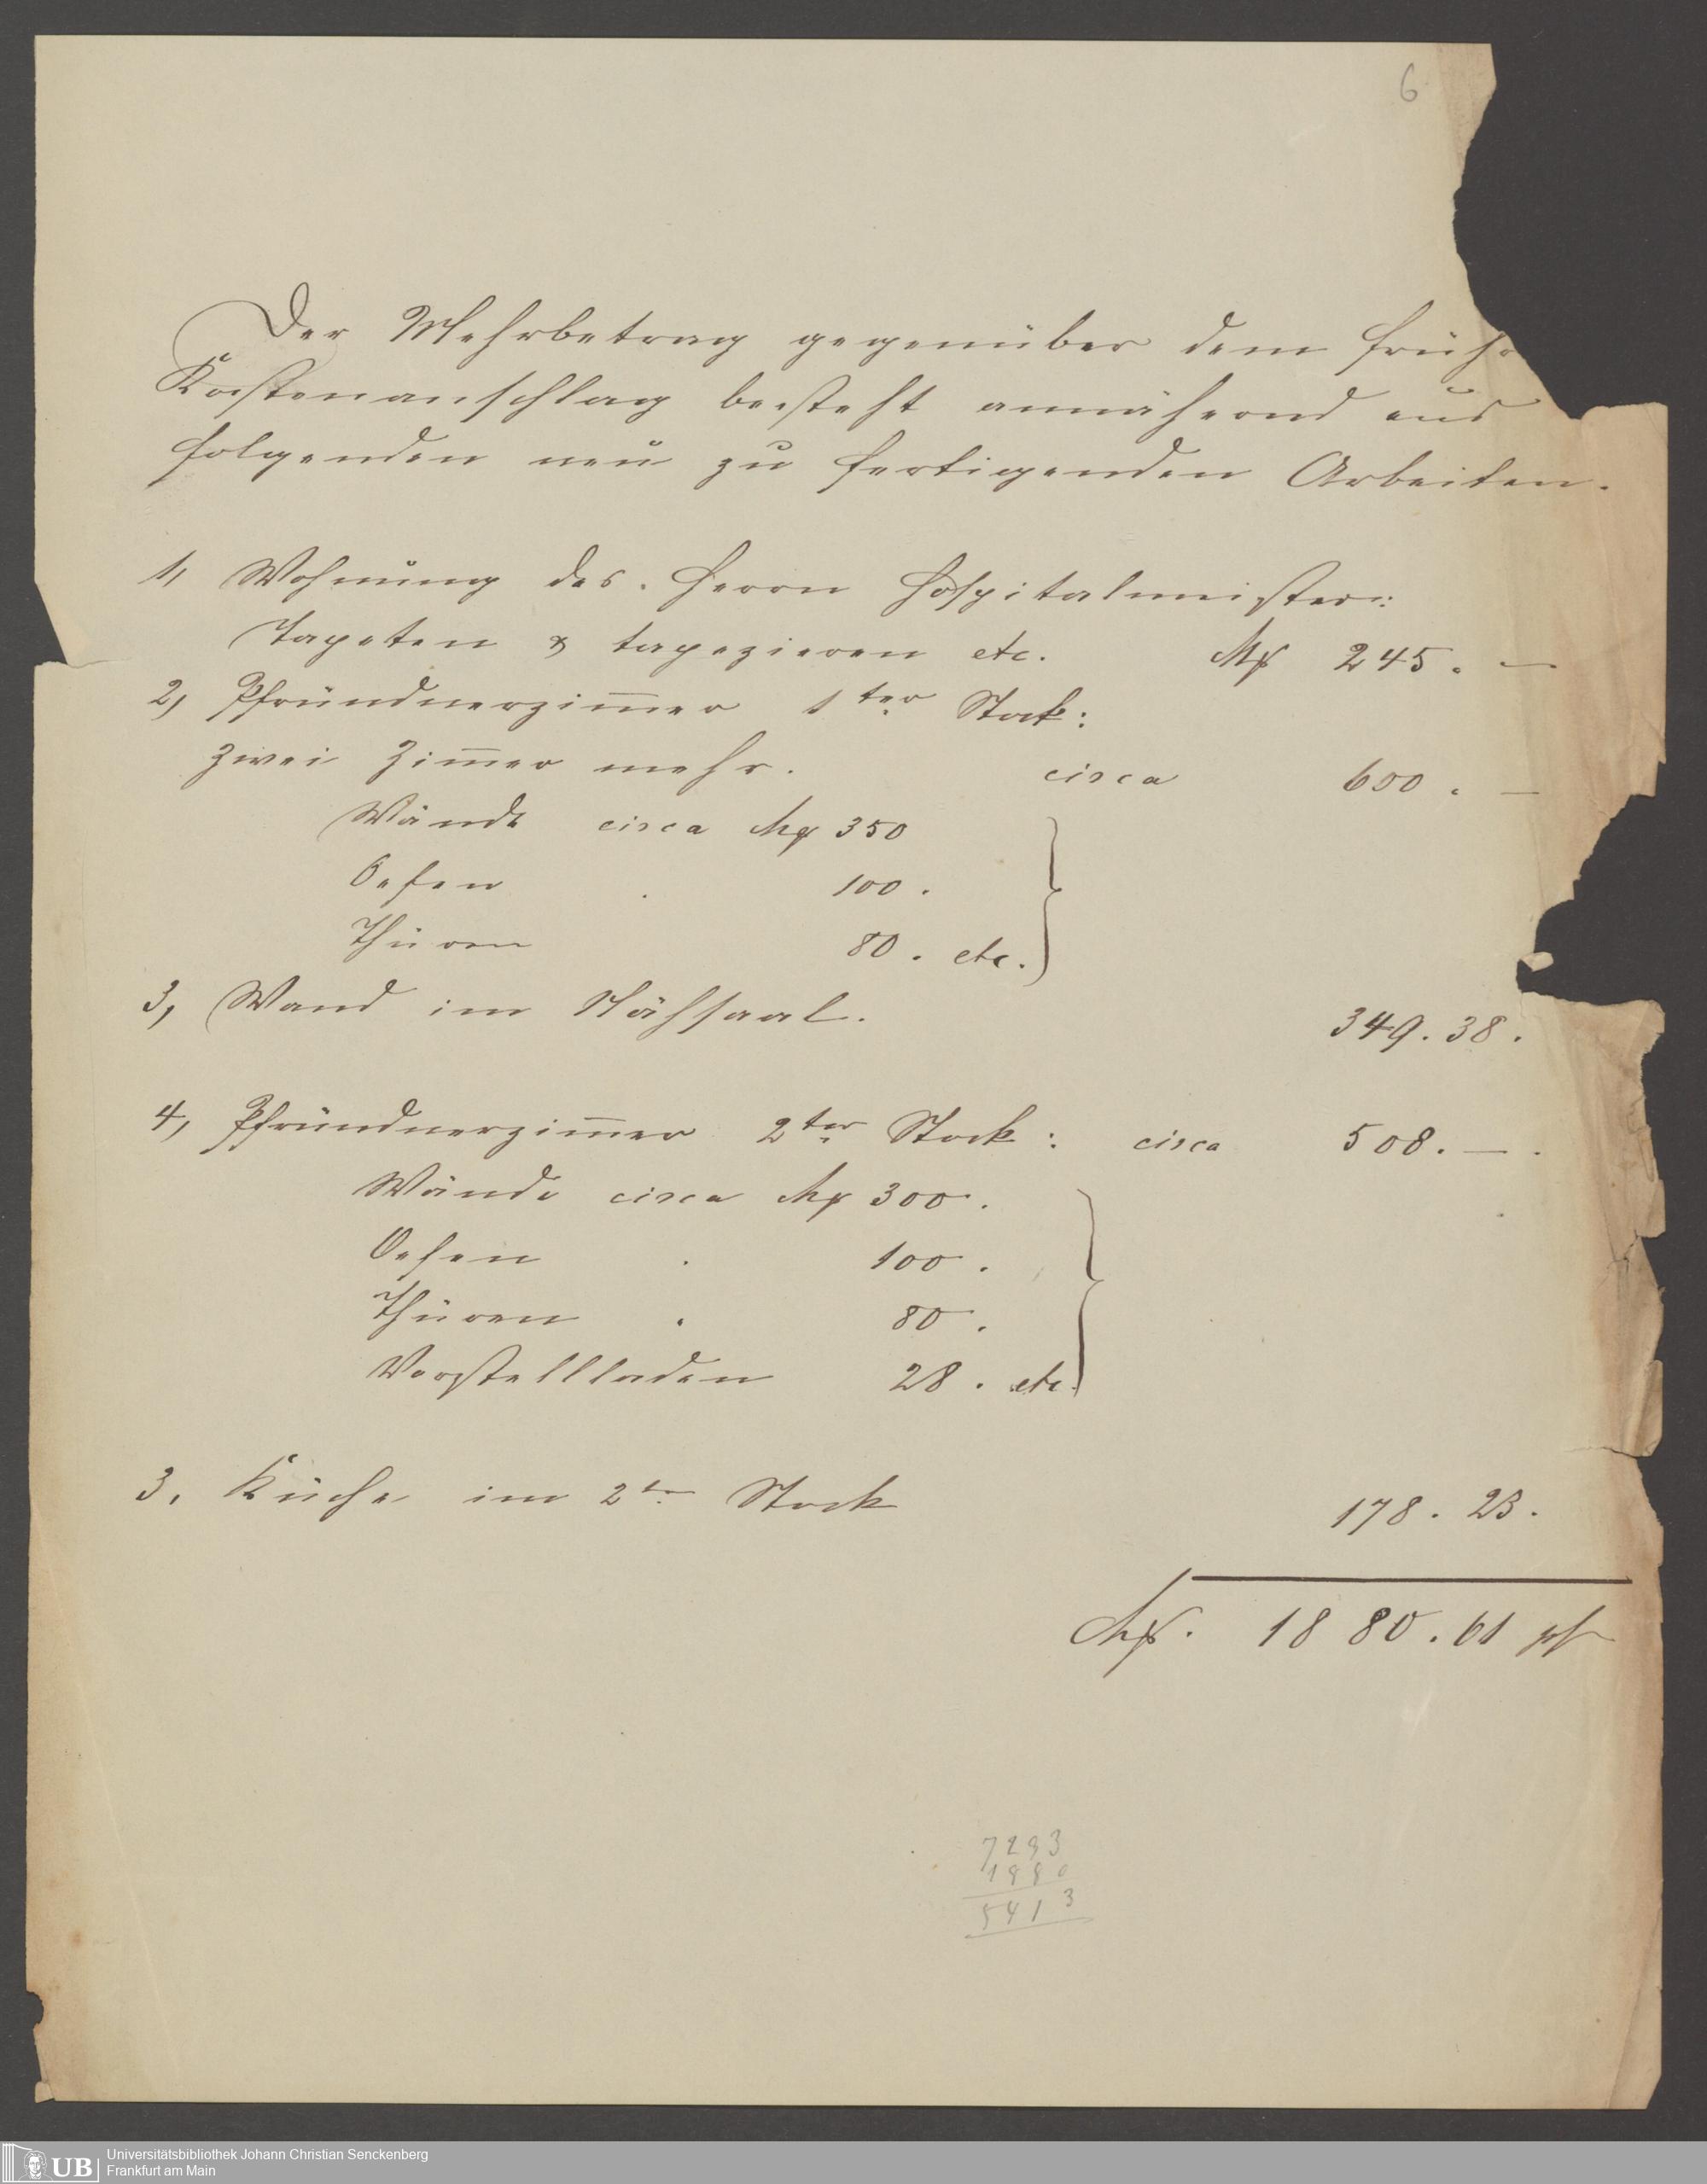 6
Der Mehrbetrag gegenüber dem früh
Kostenanschlag besteht annähernd aus
folgenden neu zu fertigenden Arbeiten.
1, Wohnung des Herrn Hospitalmeister:
Tapeten & tapezieren etc. Mk 245. —
2, Pfründnerzim̅er 1ter Stock:
zwei Zim̅er mehr. circa 600. —
Wände circa Mk 350
Oefen 100.
Thüren 80. etc.
3, Wand im Nähsaal. 349. 38.
4, Pfründnerzim̅er 2ter Stock: circa 508. —.
Wände circa Mk 300.
Oefen 100.
Thüren 80.
Vorstellladen 28. etc.
3. Küche im 2ter Stock 178. 23.
Mk. 1880. 61 pf
7293
1880
5413
UB Universitätsbibliothek Johann Christian Senckenberg
Frankfurt am Main